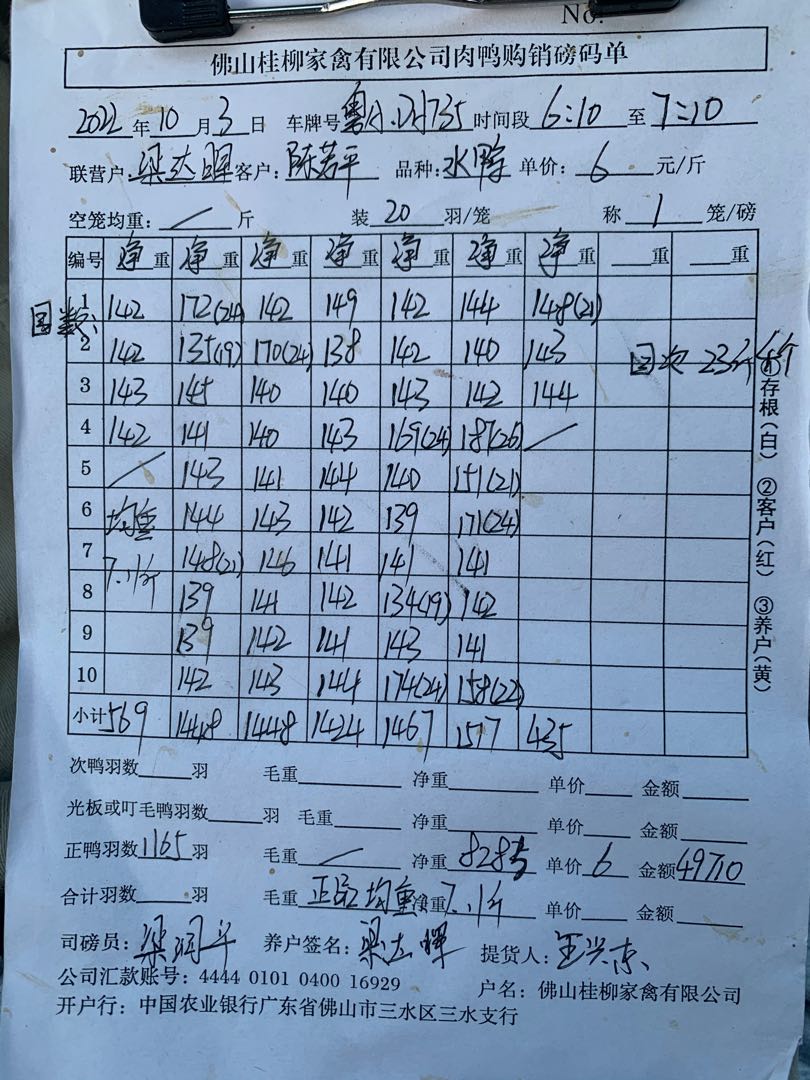 No.
佛山桂柳家禽有限公司肉鸭购销磅码单
2022年10月3日 车牌号 粤A 735 时间段 6:10 至 7:10
联营户:梁达晖 客户:陈若平 品种:水鸭 单价:6 元/斤
空笼均重: / 斤 装 20 羽/笼 称 1 笼/磅
编号 净重 净重 净重 净重 净重 净重 净重 重 重
1 142 172(24) 142 149 142 144 148(21)
2 142 135(19) 170(24) 138 142 140 143
3 143 145 140 140 143 142 144
4 142 141 140 143 169(24) 187(26) /
5 / 143 141 144 140 151(21)
6 均重 144 143 142 139 171(24)
7 7.1斤 148(21) 146 141 141 141
8 139 141 142 134(19) 142
9 139 142 141 143 141
10 142 143 144 174(24) 158(22)
小计 569 1448 1448 1424 1467 1517 435
①存根(白) ②客户(红) ③养户(黄)
次鸭羽数 羽 毛重 净重 单价 金额
光板或叮毛鸭羽数 羽 毛重 净重 单价 金额
正鸭羽数 1165 羽 毛重 / 净重 8285 单价 6 金额 49710
合计羽数 羽 毛重 正品均重 净重 7.1斤 单价 金额
司磅员:梁润平 养户签名:梁达晖 提货人:王兴东
公司汇款账号:4444 0101 0400 16929 户名:佛山桂柳家禽有限公司
开户行:中国农业银行广东省佛山市三水区三水支行